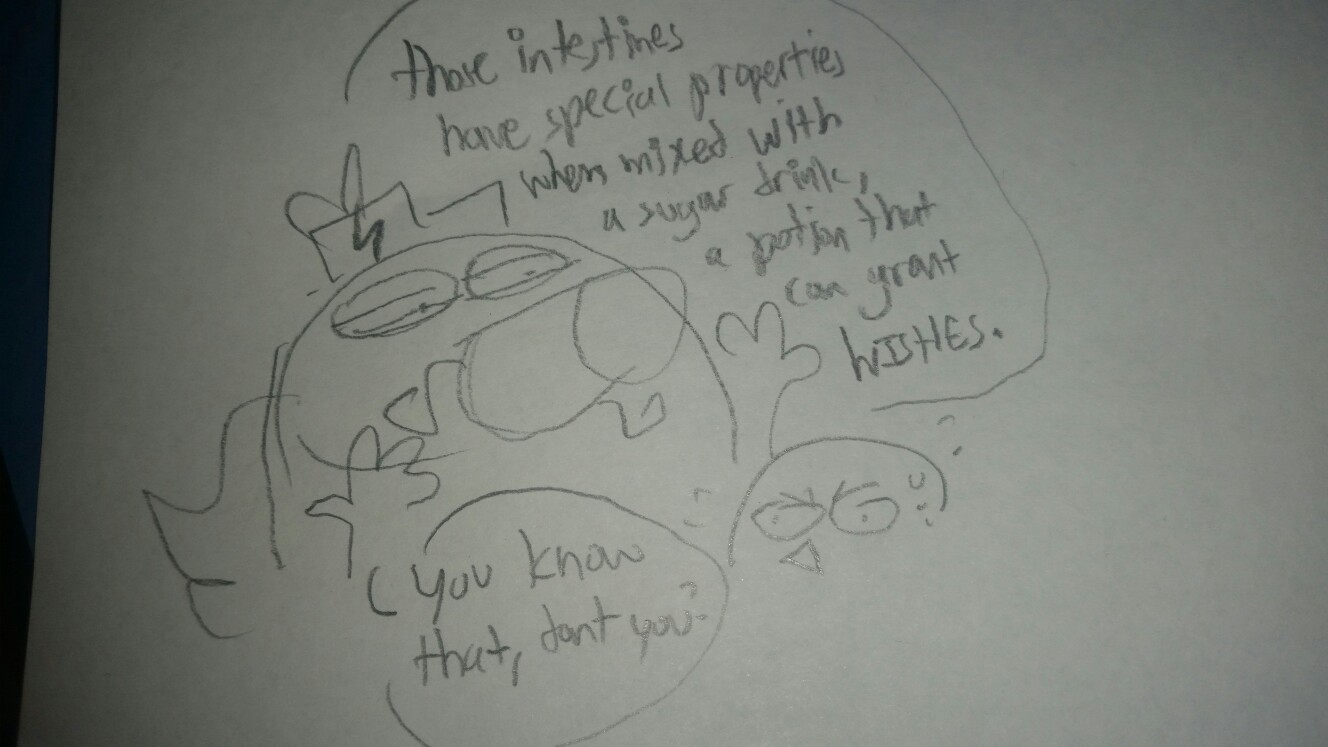 those intestines
have special properties
when mixed with
a sugar drink,
a potion that
can grant
WISHES.
you know
that, dont you?